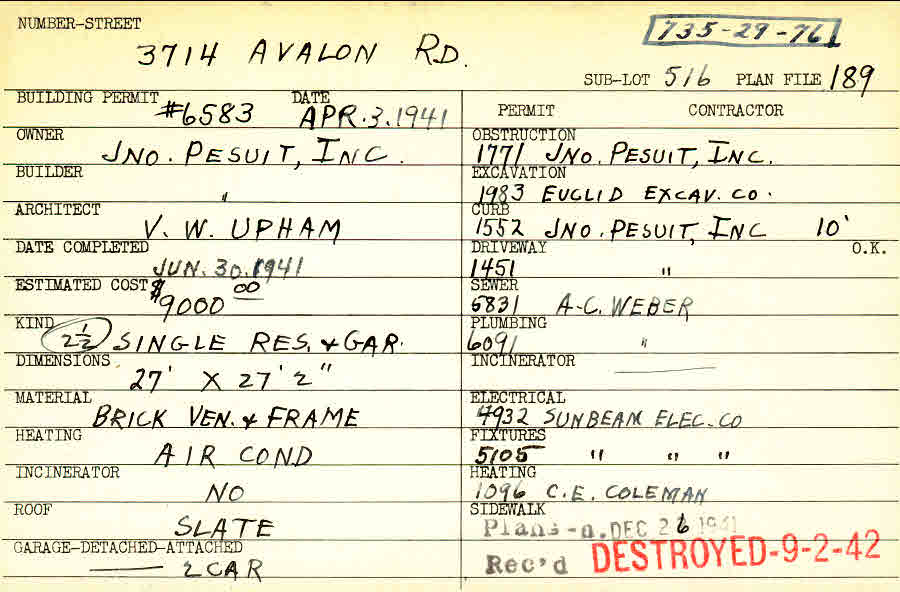 NUMBER-STREET
735-29-761
3714 AVALON RD.
SUB-LOT 516 PLAN FILE 189
BUILDING PERMIT #6583 DATE APR.3.1941
OWNER JNO. PESUIT, INC.
BUILDER "
ARCHITECT V. W. UPHAM
DATE COMPLETED JUN. 30.1941
ESTIMATED COST $9000 00
KIND 2½ SINGLE RES. & GAR.
DIMENSIONS 27' X 27' 2"
MATERIAL BRICK VEN. & FRAME
HEATING AIR COND
INCINERATOR NO
ROOF SLATE
GARAGE-DETACHED-ATTACHED
2 CAR
PERMIT CONTRACTOR
OBSTRUCTION
1771 JNO. PESUIT, INC.
EXCAVATION
1983 EUCLID EXCAV. CO.
CURB
1552 JNO. PESUIT, INC 10'
DRIVEWAY O.K.
1451 "
SEWER
5831 A.C. WEBER
PLUMBING
6091 "
INCINERATOR
ELECTRICAL
4932 SUNBEAM ELEC. CO
FIXTURES
5105 " " "
HEATING
1096 C.E. COLEMAN
SIDEWALK
Plans DEC 26 1941
Rec'd DESTROYED-9-2-42